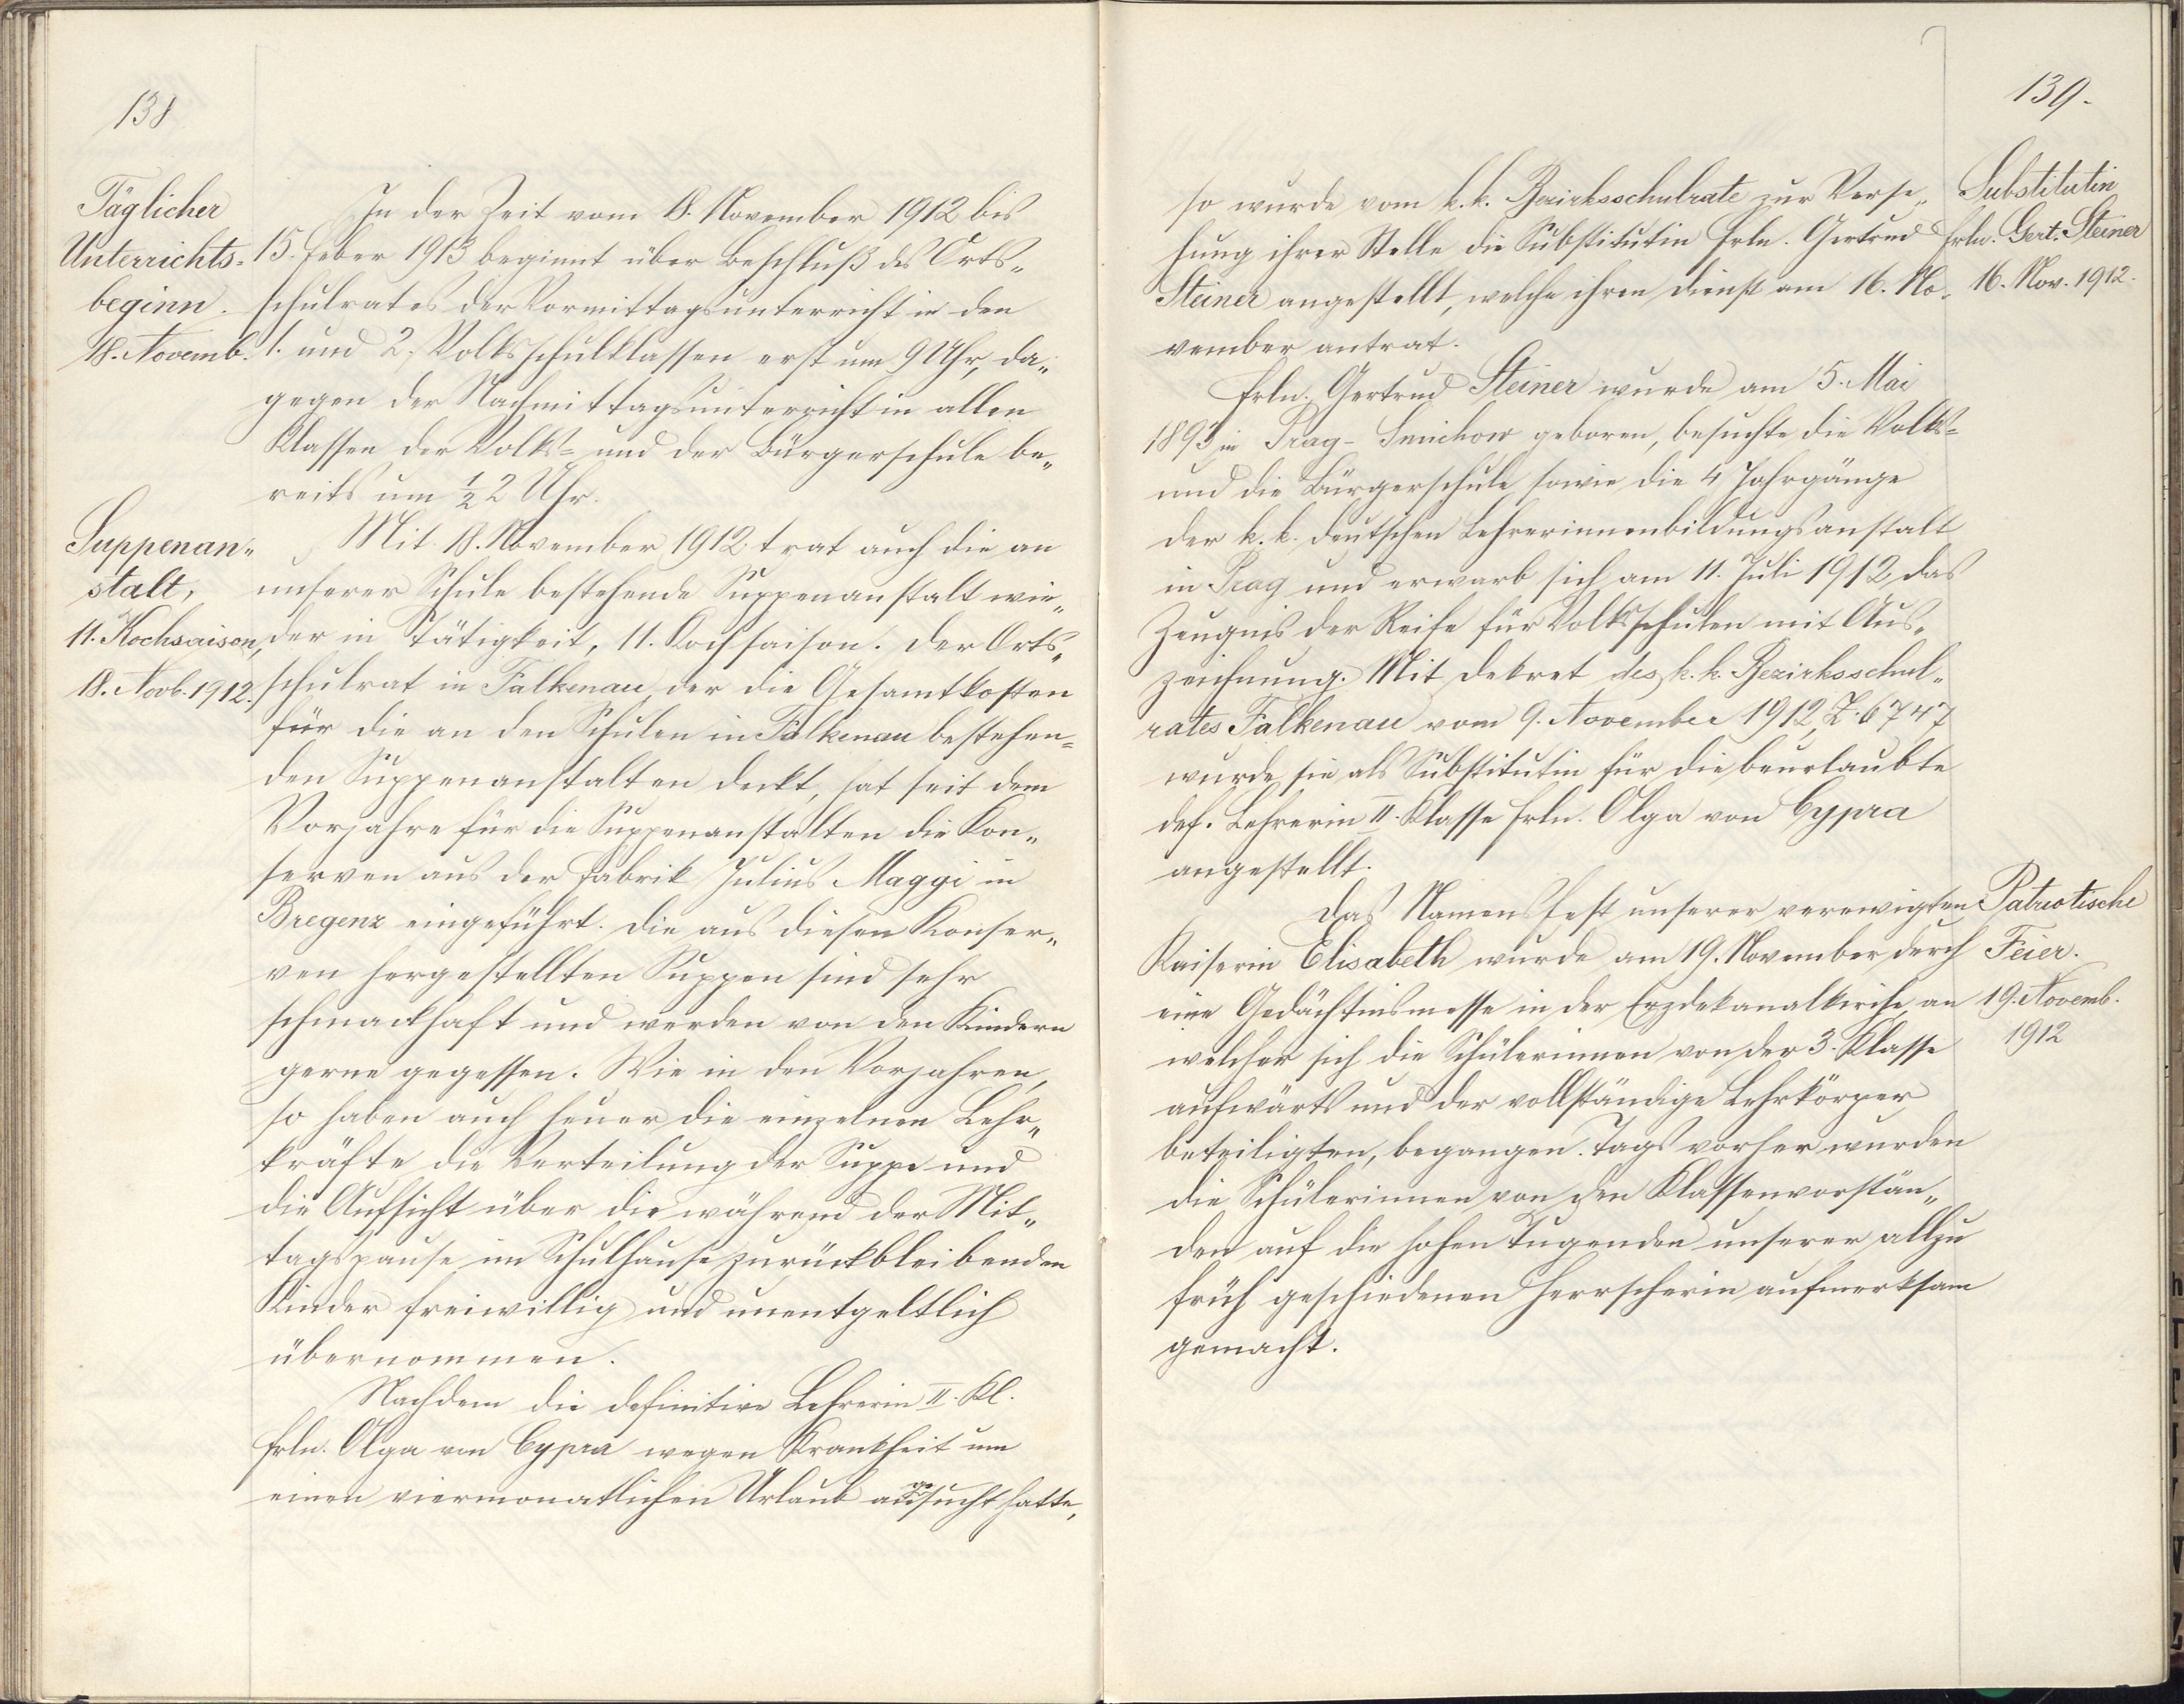 138
Täglicher
Unterrichts-
beginn.
18. Novemb.
In der Zeit vom 18. November 1912 bis
15. Feber 1913 beginnt über Beschluß des Orts-
schulrates der Vormittagsunterricht in den
1. und 2. Volksschulklassen erst um 9 Uhr, da-
gegen der Nachmittagsunterricht in allen
Klassen der Volks- und der Bürgerschule be-
reits um ½ 2 Uhr.
Suppenan-
stalt,
11. Kochsaison,
18. Novb. 1912.
Mit 18. November 1912 trat auch die an
unserer Schule bestehende Suppenanstalt wie-
der in Tätigkeit, 11. Kochsaison. Der Orts-
schulrat in Falkenau, der die Gesamtkosten
für die an den Schulen in Falkenau bestehen-
den Suppenanstalten deckt, hat seit dem
Vorjahre für die Suppenanstalten die Kon-
serven aus der Fabrik Julius Maggi in
Bregenz eingeführt. Die aus diesen Konser-
ven hergestellten Suppen sind sehr
schmackhaft und werden von den Kindern
gerne gegessen. Wie in den Vorjahren,
so haben auch heuer die einzelnen Lehr-
kräfte die Verteilung der Suppe und
die Aufsicht über die während der Mit-
tagspause im Schulhause zurückbleibenden
Kinder freiwillig und unentgeltlich
übernommen.
Nachdem die definitive Lehrerin II. Kl.
Frln. Olga von Cypra wegen Krankheit um
einen viermonatlichen Urlaub angesucht hatte,
139.
so wurde vom k. k. Bezirksschulrate zur Verse-
hung ihrer Stelle die Substitutin Frln. Gertrud
Steiner angestellt, welche ihren Dienst am 16. No-
vember antrat.
Substitutin
Frln. Gert. Steiner
16. Nov. 1912.
Frln. Gertrud Steiner wurde am 5. Mai
1893 in Prag-Smichow geboren, besuchte die Volks-
und die Bürgerschule sowie die 4 Jahrgänge
der k. k. deutschen Lehrerinnenbildungsanstalt
in Prag und erwarb sich am 11. Juli 1912 das
Zeugnis der Reife für Volksschulen mit Aus-
zeichnung. Mit Dekret des k. k. Bezirksschul-
rates Falkenau vom 9. November 1912, Z. 6747,
wurde sie als Substitutin für die beurlaubte
def. Lehrerin II. Klasse Frln. Olga von Cypra
angestellt.
Das Namensfest unserer verewigten
Kaiserin Elisabeth wurde am 19. November durch
eine Gedächtnismesse in der Erzdekanalkirche, an
welcher sich die Schülerinnen von der 3. Klasse
aufwärts und der vollständige Lehrkörper
beteiligten, begangen. Tags vorher wurden
die Schülerinnen von den Klassenvorstän-
den auf die hohen Tugenden unserer allzu
früh geschiedenen Herrscherin aufmerksam
gemacht.
Patriotische
Feier.
19. Novemb.
1912